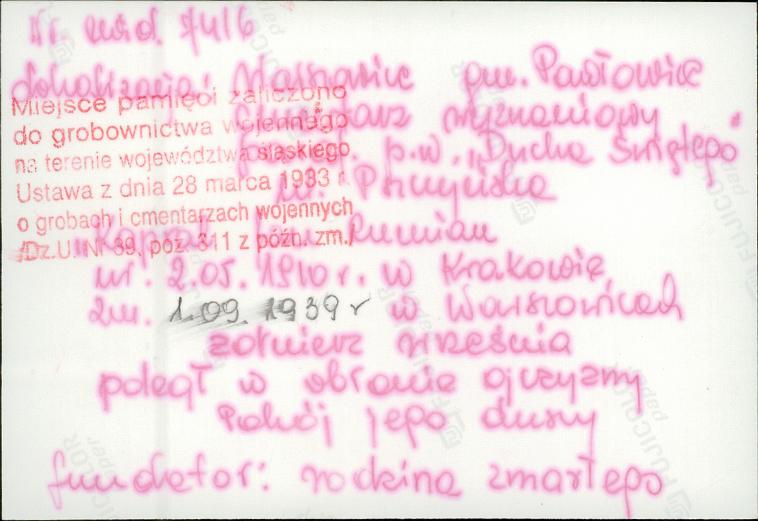 Nr. ewid. 7416
Lokalizacja: Warszowice gm. Pawłowice
cmentarz wyznaniowy
p.w. „Ducha Świętego"
ul. Pszczyńska
Miejsce pamięci zaliczono
do grobownictwa wojennego
na terenie województwa śląskiego
Ustawa z dnia 28 marca 1933 r.
o grobach i cmentarzach wojennych
/Dz.U. Nr 39, poz. 311 z późn. zm./
Rumian
ur. 2.05.1910 r. w Krakowie
zm. 1.09 1939 r w Warszowicach
żołnierz września
poległ w obronie ojczyzny
Pokój jego duszy
fundator: rodzina zmarłego
FUJICOLOR
paper